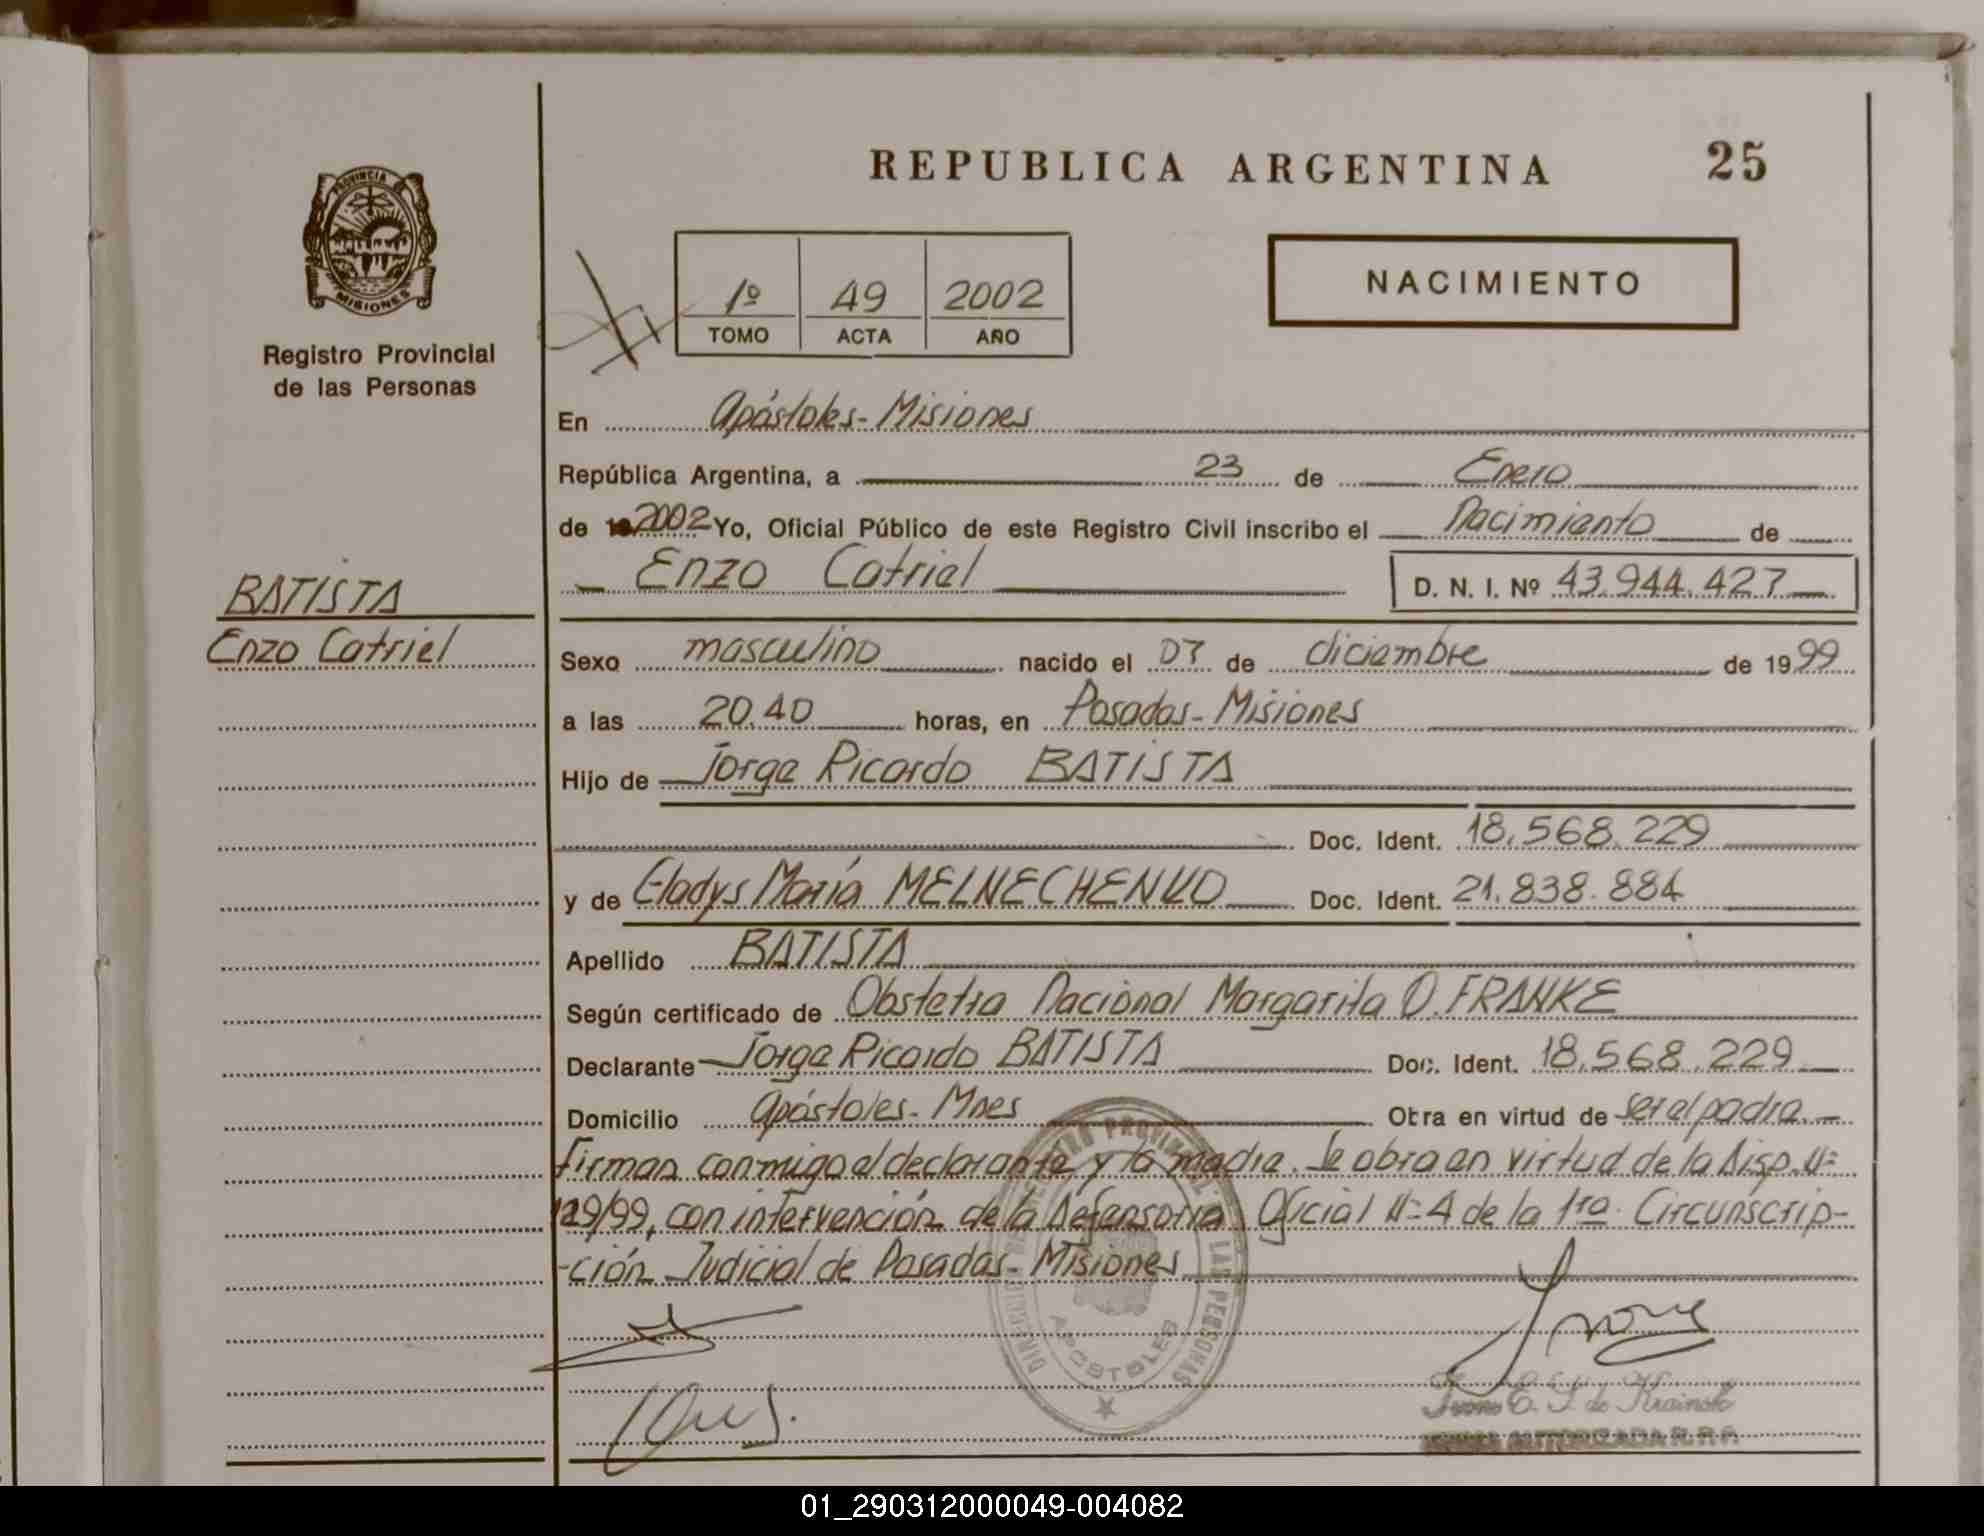 REPUBLICA ARGENTINA
25
PROVINCIA DE
MISIONES
Registro Provincial
de las Personas
1º 49 2002
TOMO ACTA AÑO
NACIMIENTO
En Apóstoles - Misiones
República Argentina, a 23 de Enero
de 2002 Yo, Oficial Público de este Registro Civil inscribo el Nacimiento de
Enzo Catriel D. N. I. Nº 43.944.427
BATISTA
Enzo Catriel
Sexo masculino nacido el 07 de diciembre de 1999
a las 20.40 horas, en Posadas - Misiones
Hijo de Jorge Ricardo BATISTA
Doc. Ident. 18.568.229
y de Gladys María MELNECHENKO Doc. Ident. 21.838.884
Apellido BATISTA
Según certificado de Obstetra Nacional Margarita O. FRANKE
Declarante Jorge Ricardo BATISTA Doc. Ident. 18.568.229
Domicilio Apóstoles - Mnes Obra en virtud de ser el padre.
Firman conmigo el declarante y la madre. Se obra en virtud de la Disp. Nº
129/99, con intervención de la Defensoría Oficial Nº 4 de la 1ra. Circunscrip-
-ción Judicial de Posadas - Misiones
DIRECCION REGISTRO PROVINCIAL DE LAS PERSONAS
APOSTOLES
Ivone E. S. de Krainski
FIRMA AUTORIZADA R.P.P.
01_290312000049-004082